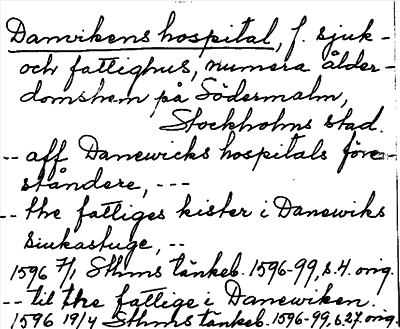 Danvikens hospital, f. sjuk-
och fattighus, numera ålder-
domshem på Södermalm,
Stockholms stad.
-- aff Danewicks hospitals före-
ståndere, ---
-- the fattiges kister i Danewiks
siukastuge, --
1596 7/1 Sthms tänkeb. 1596-99, s. 4. orig.
-- til the fattige i Danewiken.
1596 19/4 Sthms tänkeb. 1596-99, s. 27. orig.